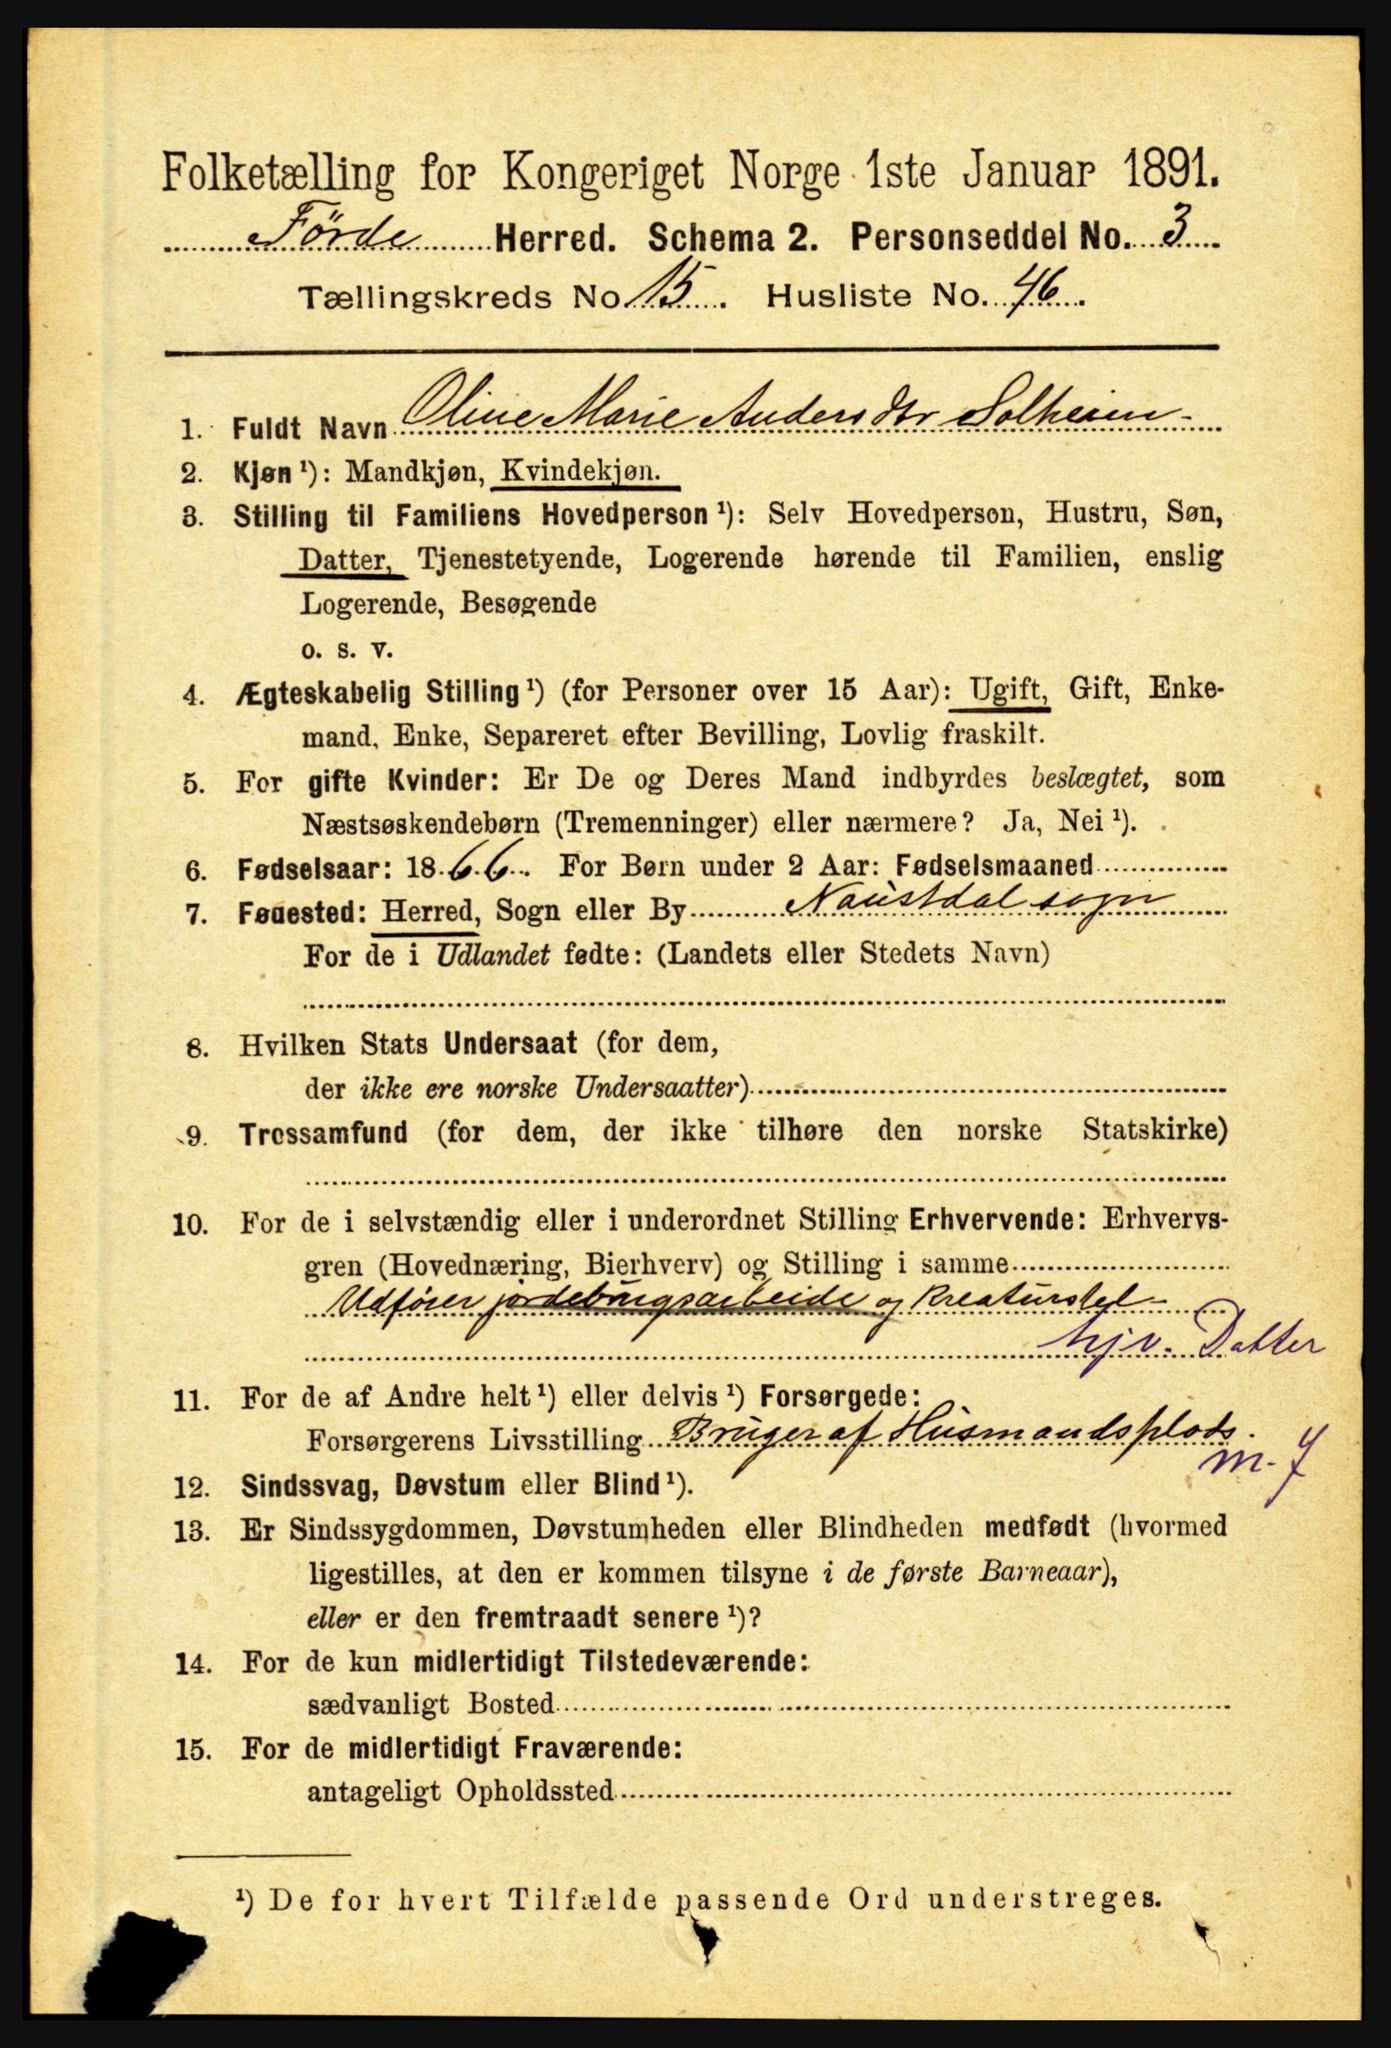 Folketælling for Kongeriget Norge 1ste Januar 1891.
Förde Herred. Schema 2. Personseddel No. 3
Tællingskreds No 15. Husliste No. 46.
1. Fuldt Navn Oline Marie Andersdtr Solheim
2. Kjøn ¹): Mandkjøn, Kvindekjøn.
3. Stilling til Familiens Hovedperson ¹): Selv Hovedperson, Hustru, Søn,
Datter, Tjenestetyende, Logerende hørende til Familien, enslig
Logerende, Besøgende
o. s. v.
4. Ægteskabelig Stilling ¹) (for Personer over 15 Aar): Ugift, Gift, Enke-
mand, Enke, Separeret efter Bevilling, Lovlig fraskilt.
5. For gifte Kvinder: Er De og Deres Mand indbyrdes beslægtet, som
Næstsøskendebørn (Tremenninger) eller nærmere? Ja, Nei ¹).
6. Fødselsaar: 1866. For Børn under 2 Aar: Fødselsmaaned
7. Fødested: Herred, Sogn eller By Naustdal sogn
For de i Udlandet fødte: (Landets eller Stedets Navn)
8. Hvilken Stats Undersaat (for dem,
der ikke ere norske Undersaatter)
9. Trossamfund (for dem, der ikke tilhøre den norske Statskirke)
10. For de i selvstændig eller i underordnet Stilling Erhvervende: Erhvervs-
gren (Hovednæring, Bierhverv) og Stilling i samme
Udfører jordebrugsarbeide og Kreaturstel
hjv. Datter
11. For de af Andre helt ¹) eller delvis ¹) Forsørgede:
Forsørgerens Livsstilling Bruger af Husmandsplads.
m. J
12. Sindssvag, Døvstum eller Blind ¹).
13. Er Sindssygdommen, Døvstumheden eller Blindheden medfødt (hvormed
ligestilles, at den er kommen tilsyne i de første Barneaar),
eller er den fremtraadt senere ¹)?
14. For de kun midlertidigt Tilstedeværende:
sædvanligt Bosted
15. For de midlertidigt Fraværende:
antageligt Opholdssted
¹) De for hvert Tilfælde passende Ord understreges.